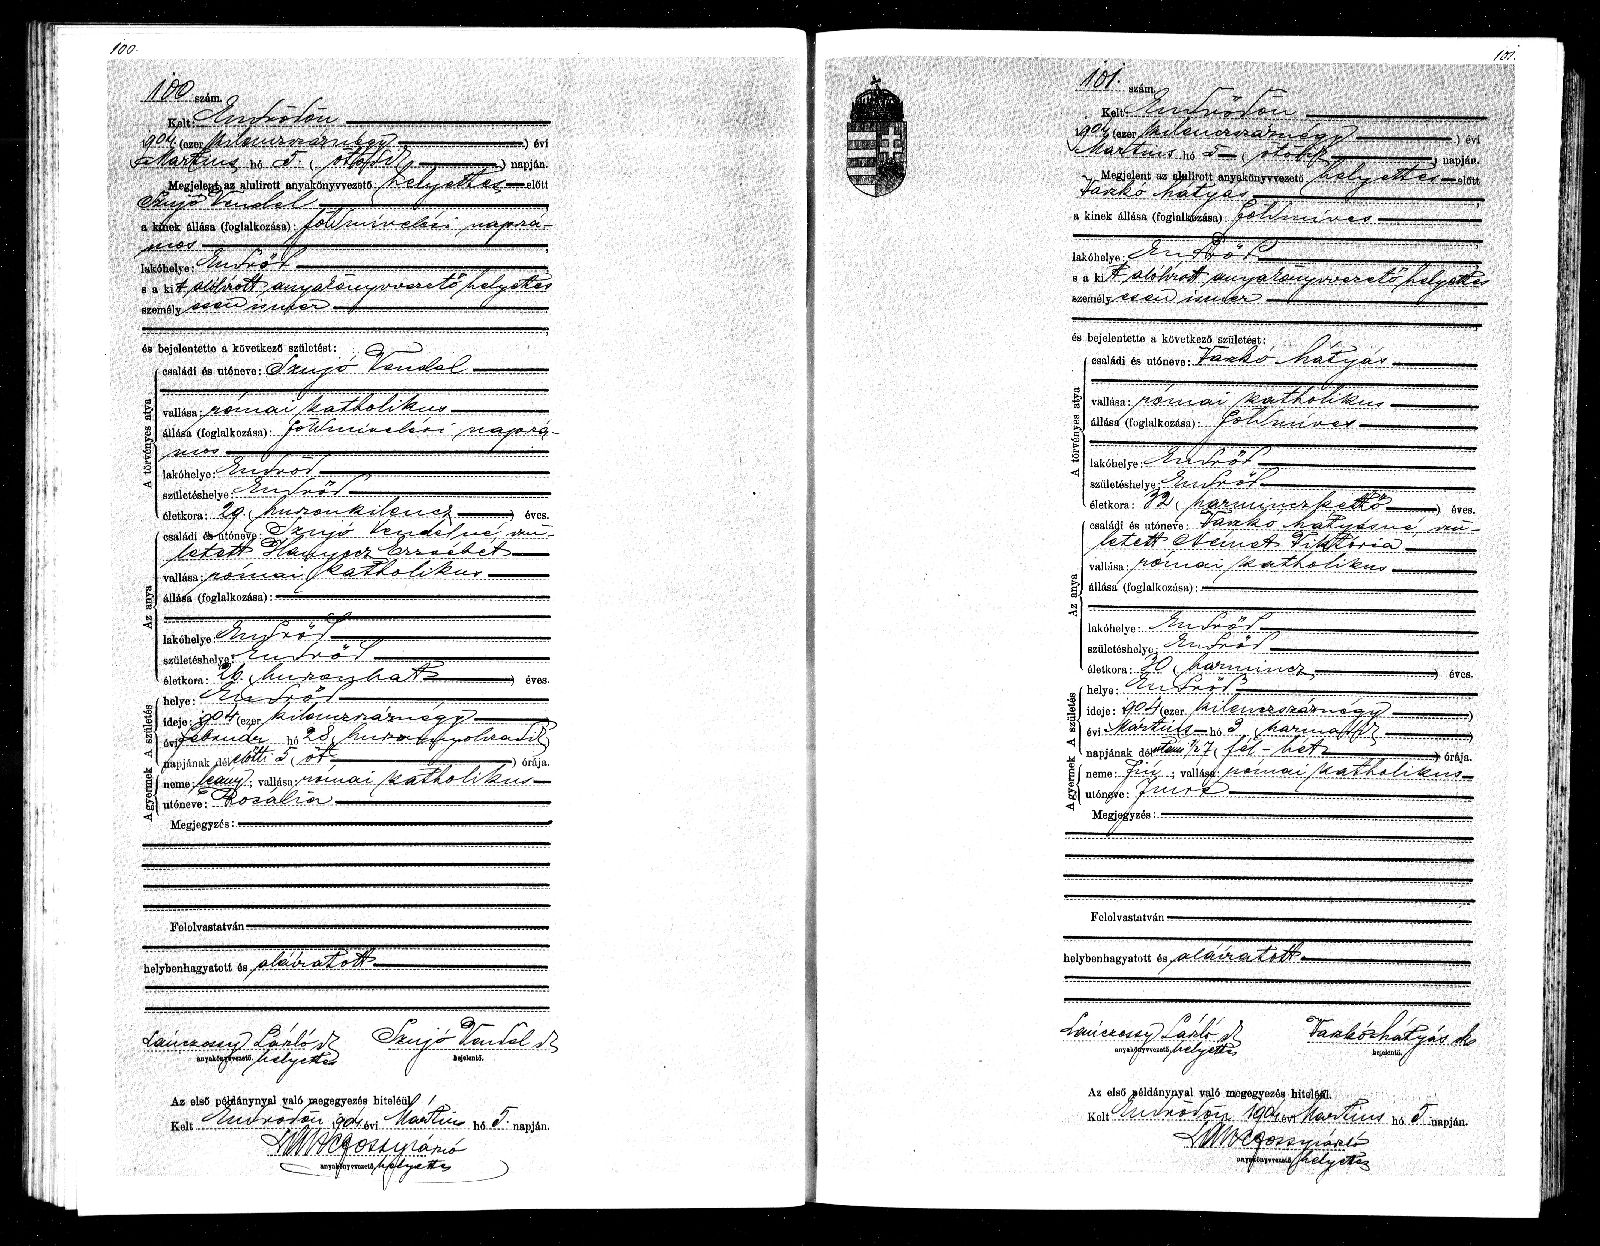 100.
100 szám.
Kelt: Endrődön
1904 (ezer kilenczszáznégy) évi
Martius hó 5. (ötödik) napján.
Megjelent az alulirott anyakönyvvezető helyettes előtt
Szujó Vendel
a kinek állása (foglalkozása): földmivelési napszá-
mos
lakóhelye: Endrőd
s a kit alólirott anyakönyvvezető helyettes
személyesen ismer
és bejelentette a következő születést:
A törvényes atya
családi és utóneve: Szujó Vendel
vallása: római katholikus
állása (foglalkozása): földmivelési napszá-
mos
lakóhelye: Endrőd
születéshelye: Endrőd
életkora: 29 (huszonkilencz) éves.
Az anya
családi és utóneve: Szujó Vendelné, szü-
letett Erzsébet
vallása: római katholikus
állása (foglalkozása):
lakóhelye: Endrőd
születéshelye: Endrőd
életkora: 26 (huszonhat) éves.
A gyermek A születés
helye: Endrőd
ideje: 1904 (ezer kilenczszáznégy)
évi Február hó 28 (huszonnyolczadik)
napjának délelőtti 5 (öt) órája.
neme: leány; vallása: római katholikus
utóneve: Rosalia
Megjegyzés:
Felolvastatván
helybenhagyatott és aláiratott
Lánczossy László sk Szujó Vendel sk
anyakönyvvezető helyettes bejelentő.
Az első példánynyal való megegyezés hiteléül.
Kelt Endrődön 1904 évi Mártius hó 5. napján.
Lánczossy László
anyakönyvvezető helyettes
101.
101. szám.
Kelt: Endrődön
1904 (ezer kilenczszáznégy) évi
Martius hó 5 (ötödik) napján.
Megjelent az alulirott anyakönyvvezető helyettes előtt
Vaskó Mátyás
a kinek állása (foglalkozása): földmíves
lakóhelye: Endrőd
s a kit alólirott anyakönyvvezető helyettes
személyesen ismer
és bejelentette a következő születést:
A törvényes atya
családi és utóneve: Vaskó Mátyás
vallása: római katholikus
állása (foglalkozása): földmíves
lakóhelye: Endrőd
születéshelye: Endrőd
életkora: 32 (harminczkettő) éves.
Az anya
családi és utóneve: Vaskó Mátyásné, szü-
letett Német Viktória
vallása: római katholikus
állása (foglalkozása):
lakóhelye: Endrőd
születéshelye: Endrőd
életkora: 30 (harmincz) éves.
A gyermek A születés
helye: Endrőd
ideje: 1904 (ezer kilenczszáznégy)
évi Martius hó 3 (harmadik)
napjának délután 1/2 7 (fél-hét) órája.
neme: fiú; vallása: római katholikus
utóneve: Imre
Megjegyzés:
Felolvastatván
helybenhagyatott és aláiratott
Lánczossy László sk Vaskó Mátyás sk
anyakönyvvezető helyettes bejelentő.
Az első példánynyal való megegyezés hiteléül.
Kelt Endrődön 1904 évi Martius hó 5 napján.
Lánczossy László
anyakönyvvezető helyettes